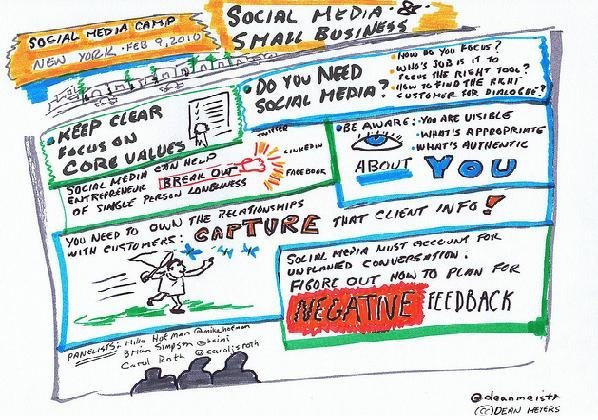 SOCIAL MEDIA CAMP
NEW YORK · FEB 9, 2010
SOCIAL MEDIA · & ·
SMALL BUSINESS
• KEEP CLEAR
FOCUS ON
CORE VALUES
• DO YOU NEED
SOCIAL MEDIA?
• HOW DO YOU FOCUS?
• WHO'S JOB IS IT TO
FOCUS THE RIGHT TOOL?
• HOW TO FIND THE RIGHT
CUSTOMER FOR DIALOGUE?
SOCIAL MEDIA CAN HELP
ENTREPRENEUR BREAK OUT
OF SINGLE PERSON LONELINESS
TWITTER
LINKEDIN
FACEBOOK
• BE AWARE: • YOU ARE VISIBLE
• WHAT'S APPROPRIATE
• WHAT'S AUTHENTIC
ABOUT YOU
YOU NEED TO OWN THE RELATIONSHIPS
WITH CUSTOMERS: CAPTURE THAT CLIENT INFO!
SOCIAL MEDIA MUST ACCOUNT FOR
UNPLANNED CONVERSATION.
FIGURE OUT HOW TO PLAN FOR
NEGATIVE FEEDBACK
PANELISTS: Mike Hofman @mikehofman
Brian Simpson
Carol Roth
@deanmeistr
(CC) DEAN MEYERS